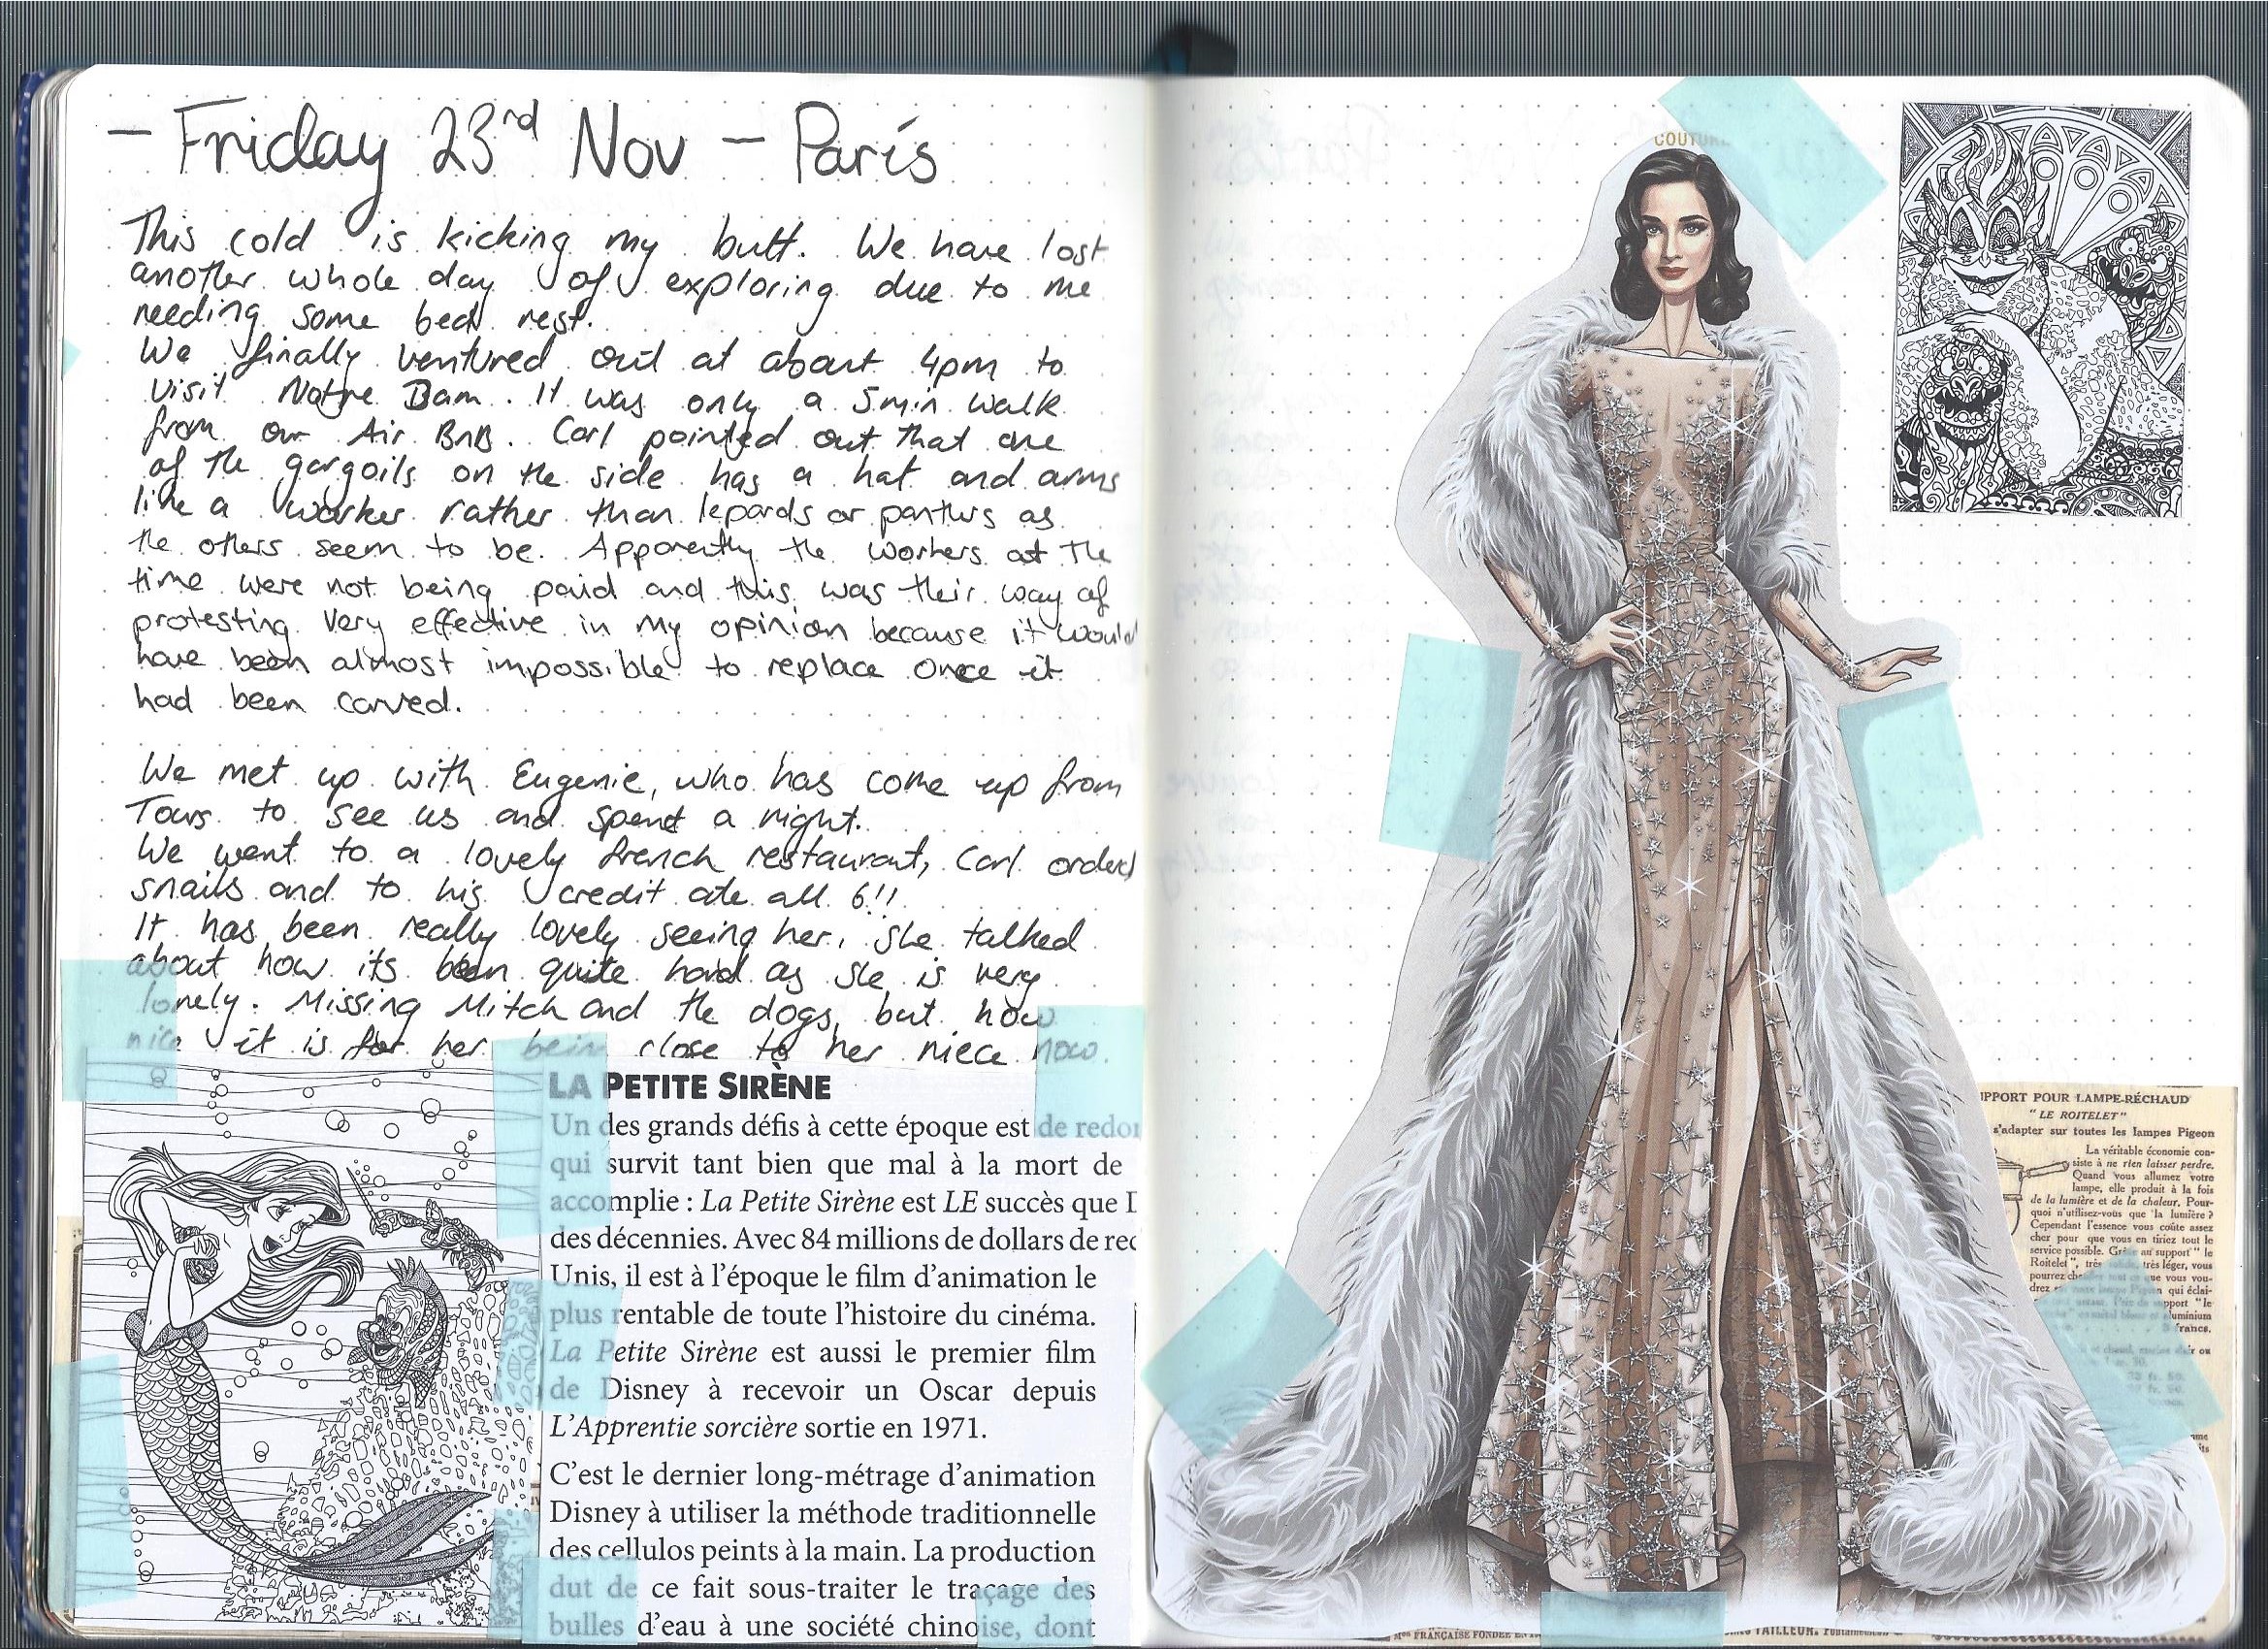 - Friday 23rd Nov - Paris
This cold is kicking my butt. We have lost
another whole day of exploring due to me
needing some bed rest.
We finally ventured out at about 4pm to
visit Notre Dam. It was only a 5min walk
from our Air BnB. Carl pointed out that one
of the gargoils on the side has a hat and arms
like a worker rather than lepards or panthers as
the others seem to be. Apparently the workers at the
time were not being paid and this was their way of
protesting. Very effective in my opinion because it would
have been almost impossible to replace once it
had been carved.
We met up with Eugenie, who has come up from
Tours to see us and spend a night.
We went to a lovely french restaurant, Carl orderd
snails and to his credit ate all 6!!
It has been really lovely seeing her, she talked
about how its been quite hard as she is very
lonely. Missing Mitch and the dogs, but how
nice it is for her being close to her niece now.
LA PETITE SIRÈNE
Un des grands défis à cette époque est de redon
qui survit tant bien que mal à la mort de
accomplie : La Petite Sirène est LE succès que D
des décennies. Avec 84 millions de dollars de rec
Unis, il est à l'époque le film d'animation le
plus rentable de toute l'histoire du cinéma.
La Petite Sirène est aussi le premier film
de Disney à recevoir un Oscar depuis
L'Apprentie sorcière sortie en 1971.
C'est le dernier long-métrage d'animation
Disney à utiliser la méthode traditionnelle
des cellulos peints à la main. La production
dut de ce fait sous-traiter le traçage des
bulles d'eau à une société chinoise, dont
COUTURE
UPPORT POUR LAMPE-RÉCHAUD
"LE ROITELET"
s'adapter sur toutes les lampes Pigeon
La véritable économie con-
siste à ne rien laisser perdre.
Quand vous allumez votre
lampe, elle produit à la fois
de la lumière et de la chaleur. Pour-
quoi n'utilisez-vous que la lumière ?
Cependant l'essence vous coûte assez
cher pour que vous en tiriez tout le
service possible. Grâce au support "le
Roitelet", très solide, très léger, vous
pourrez chauffer tout ce que vous vou-
drez sur votre lampe Pigeon qui éclai-
support "le
luminium
francs.
Mon FRANÇAISE FONDÉE EN
TAILLEUR.